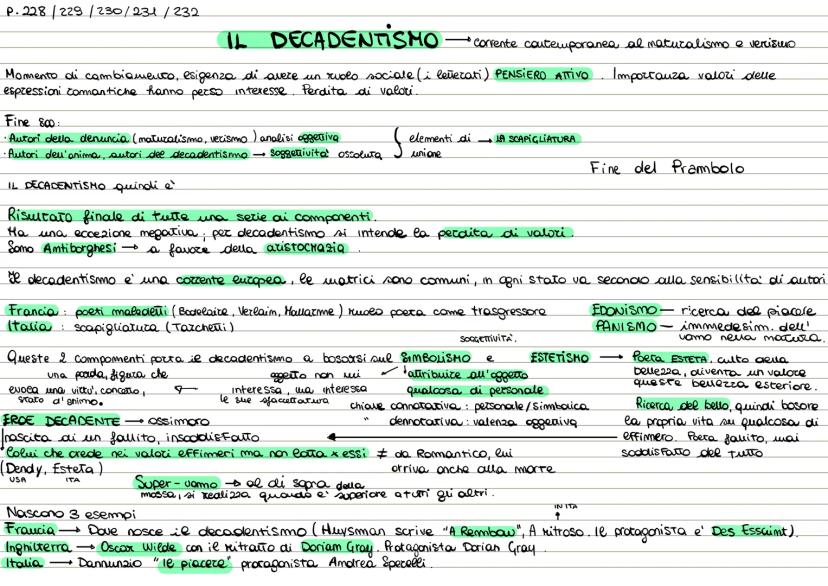 P. 228 / 229 / 230 / 231 / 232
IL DECADENTISMO → corrente contemporanea al naturalismo e verismo
Momento di cambiamento, esigenza di avere un ruolo sociale (i letterati) PENSIERO ATTIVO. Importanza valori delle
espressioni romantiche hanno perso interesse. Perdita di valori.
Fine 800:
· Autori della denuncia (naturalismo, verismo) analisi oggettiva } elementi di → LA SCAPIGLIATURA
· Autori dell'anima, autori del decadentismo → soggettività assoluta unione
Fine del Prambolo
IL DECADENTISMO quindi è
Risultato finale di tutte una serie di componenti.
Ma una eccezione negativa; per decadentismo si intende la perdita di valori.
Sono Antiborghesi → a favore della aristocrazia.
Il decadentismo è una corrente europea, le matrici sono comuni, in ogni stato va secondo alla sensibilità di autori
Francia : poeti maledetti (Bodelaire, Verlain, Mallarme) ruolo poeta come trasgressore EDONISMO — ricerca del piacere
Italia : scapigliatura (Tarchetti) PANISMO — immedesim. dell'
uomo nella natura.
SOGGETTIVITA'.
Queste 2 componenti porta il decadentismo a basarsi sul SIMBOLISMO e ESTETISMO → Poeta ESTETA, culto della
una parola, figura che oggetto non mi attribuire all'oggetto bellezza, diventa un valore
evoca una virtù, concetto, ← interessa, ma interessa qualcosa di personale queste bellezza esteriore.
stato d'animo. le sue sfaccettatura
chiave connotativa : personale / simbolica Ricerca del bello, quindi basare
EROE DECADENTE → ossimoro " dennotativa : valenza oggettiva la propria vita su qualcosa di
nascita di un fallito, insoddisfatto ← effimero. Poeta fallito, mai
Colui che crede nei valori effimeri ma non lotta x essi ≠ da Romantico, lui soddisfatto del tutto
(Dendy, Esteta) arriva anche alla morte
USA ITA
Super-uomo → al di sopra della
massa, si realizza quando è superiore a tutti gli altri.
Nascono 3 esempi
IN ITA
Francia → Dove nasce il decadentismo (Huysman scrive "A Rembau", A ritroso. Il protagonista è Des Esseint).
Inghilterra → Oscar Wilde con il ritratto di Doriam Gray. Protagonista Dorian Gray
Italia → Dannunzio "Il piacere" protagonista Andrea Sperelli.